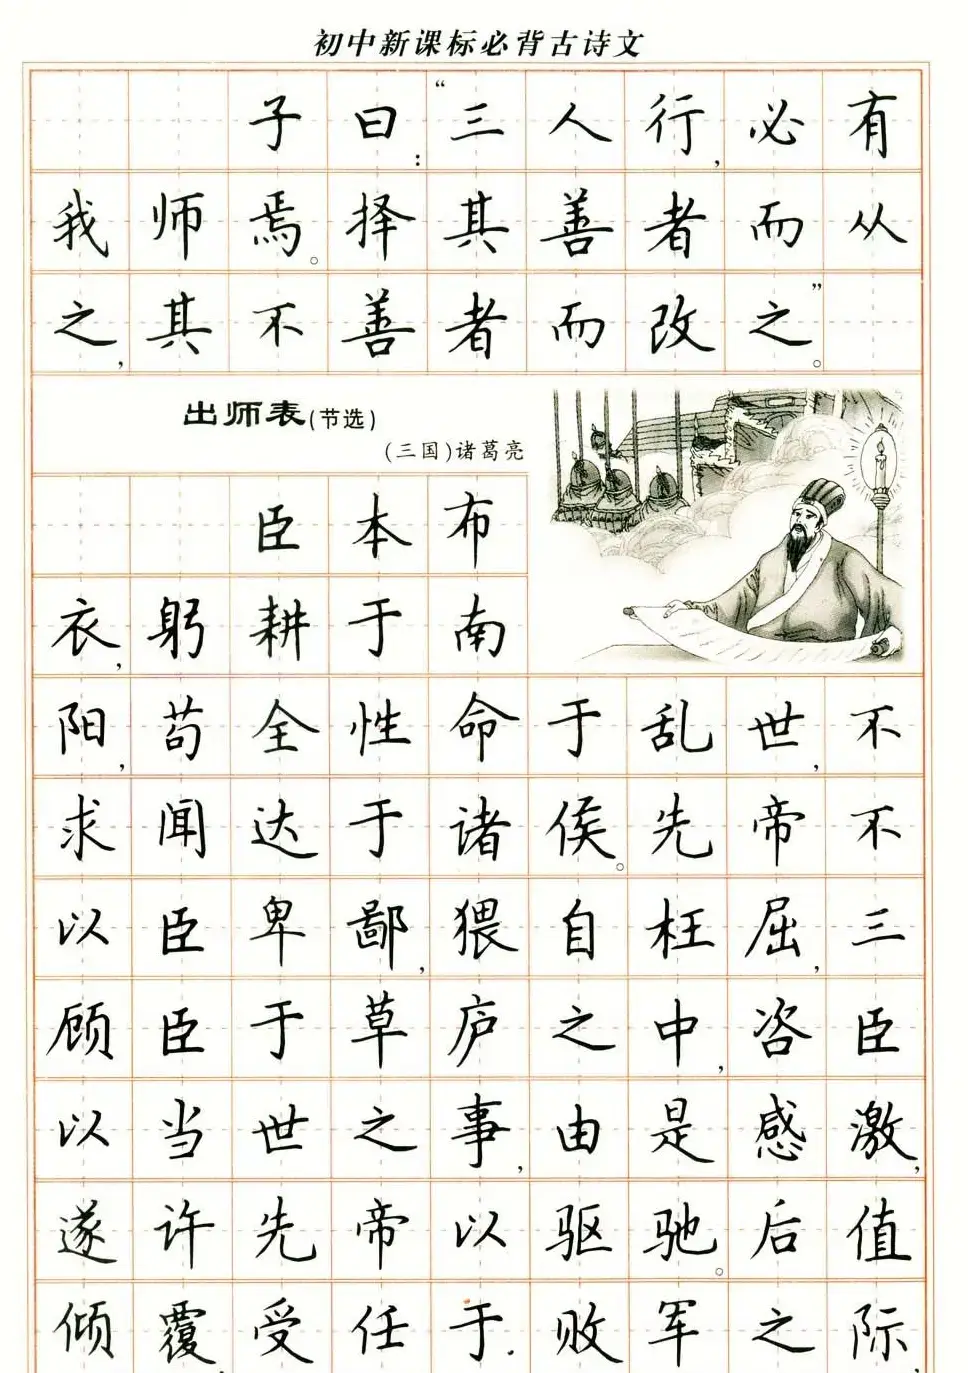 初中新课标必背古诗文
子曰：“三人行，必有
我师焉。择其善者而从
之，其不善者而改之。”
出师表(节选)
(三国)诸葛亮
臣本布
衣，躬耕于南
阳，苟全性命于乱世，不
求闻达于诸侯。先帝不
以臣卑鄙，猥自枉屈，三
顾臣于草庐之中，咨臣
以当世之事，由是感激，
遂许先帝以驱驰。后值
倾覆，受任于败军之际，